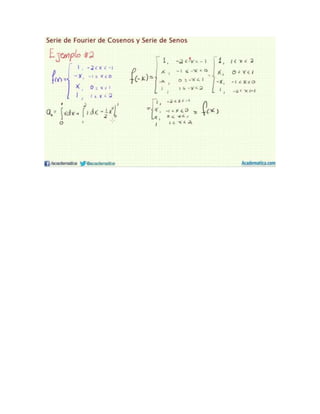 Serie de Fourier de Cosenos y Serie de Senos
Ejemplo #2
f(x)= { 1, -2<x<-1
-x, -1<x<0
x, 0<x<1
1, 1<x<2
f(-x)= { 1, -2<-x<-1
x, -1<-x<0
-x, 0<-x<1
1, 1<-x<2
= { 1, 1<x<2
x, 0<x<1
-x, -1<x<0
1, -2<x<-1
= { 1, -2<x<-1
-x, -1<x<0
x, 0<x<1
1, 1<x<2
= f(x)
a₀= ∫₀¹ xdx + ∫₁² 1dx = ½x²|₀¹
/academatica @academatica Academatica.com